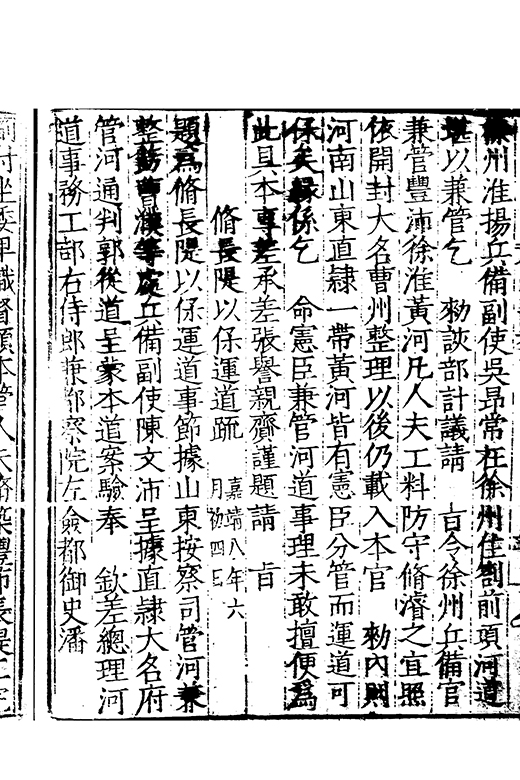 徐州淮揚兵備副使吳昂常在徐州住劄前項河道
堪以兼管乞　勑該部計議請　旨令徐州兵備官
兼管豐沛徐淮黃河凡人夫工料防守脩濬之宜照
依開封大名曹州整理以後仍載入本官　勑內則
河南山東直隷一帶黃河皆有憲臣分管而運道可
保矣緣係乞　命憲臣兼管河道事理未敢擅便爲
此具本專差承差張譽親齎謹題請　旨
脩長隄以保運道疏　嘉靖八年六
月初四日
題爲脩長隄以保運道事節據山東按察司管河兼
整飭曹濮等處兵備副使陳文沛呈據直隷大名府
管河通判郭從道呈蒙本道案驗奉　欽差總理河
道事務工部右侍郎兼都察院左僉都御史潘
劄付坐委卑職督領本管人夫脩築豐沛長隄工完